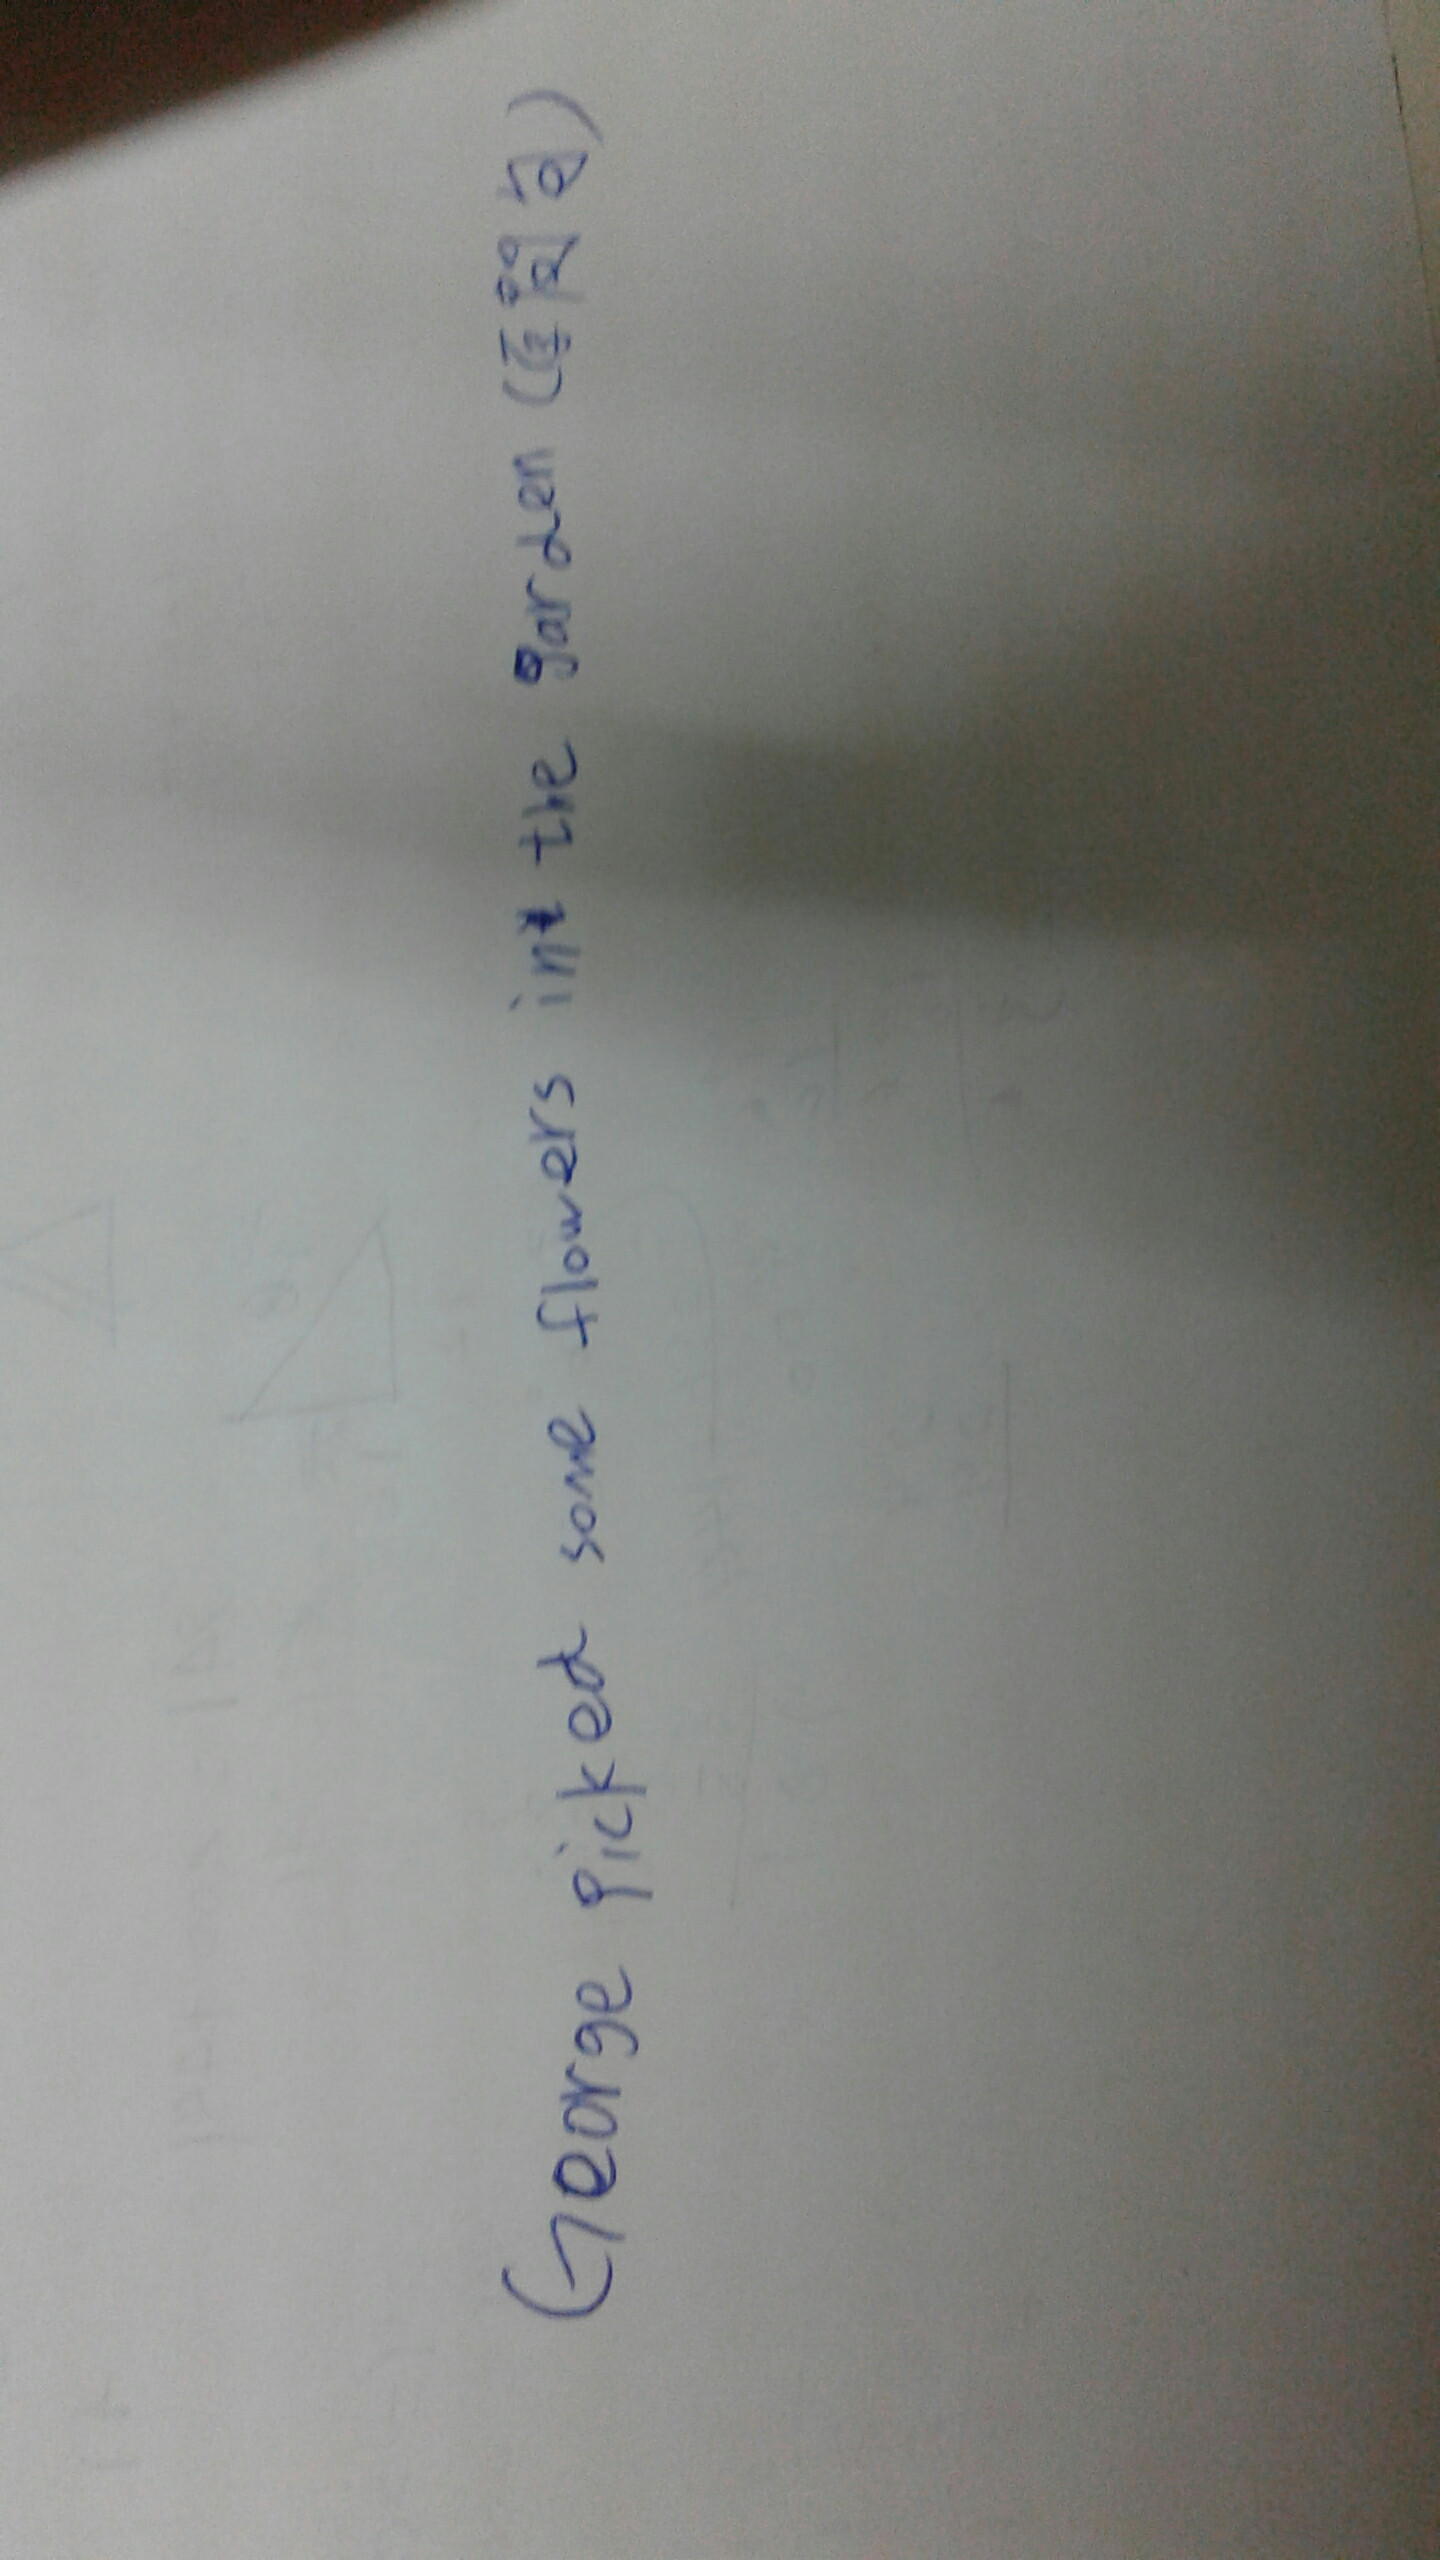 George picked some flowers in the garden